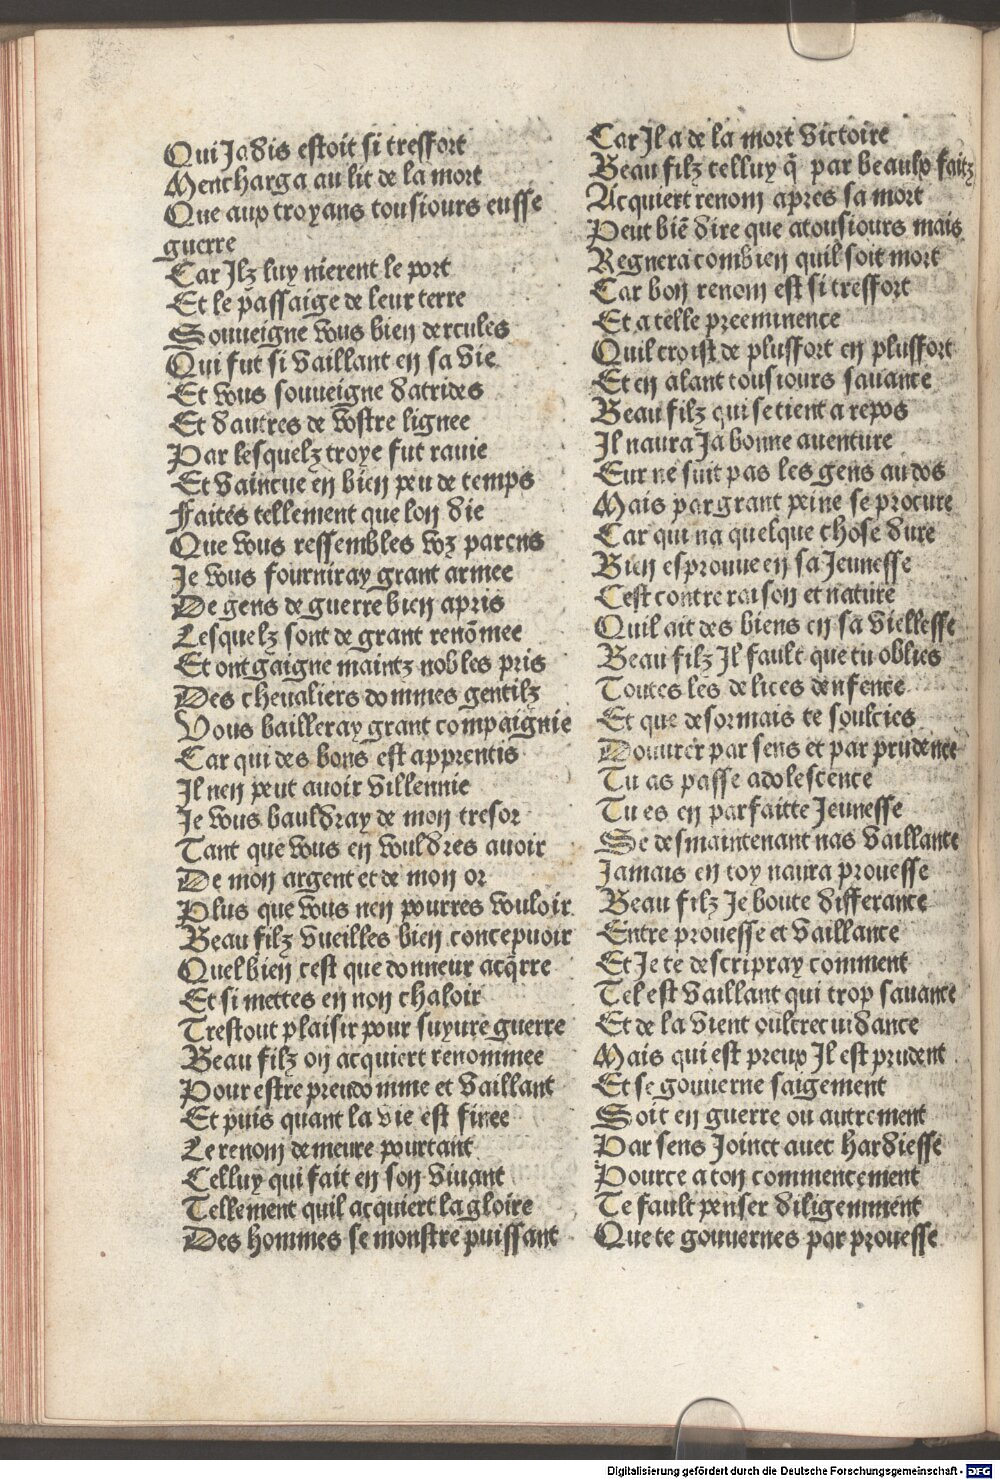 Qui Jadis estoit si tresfort
Mencharga au lit de la mort
Que aux troyans tousiours eusse
guerre
Car Jlz luy nierent le port
Et le passaige de leur terre
Souueigne vous bien dercules
Qui fut si vaillant en sa vie
Et vous souueigne datrides
Et dautres de vostre lignee
Par lesquelz troye fut rauie
Et vaincue en bien peu de temps
Faites tellement que lon die
Que vous ressembles voz parens
Je vous fourniray grant armee
De gens de guerre bien apris
Lesquelz sont de grant renõmee
Et ont gaigne maintz nobles pris
Des cheualiers dommes gentilz
Vous bailleray grant compaignie
Car qui des bons est apprentis
Il nen peut auoir villennie
Je vous bauldray de mon tresor
Tant que vous en vouldres auoir
De mon argent et de mon or
Plus que vous nen pourres vouloir
Beau filz vueilles bien concepuoir
Quel bien cest que donneur acq̃rre
Et si mettes en non chaloir
Trestout plaisir pour suyure guerre
Beau filz on acquiert renommee
Pour estre preudomme et vaillant
Et puis quant la vie est finee
Le renom demeure pourtant
Celluy qui fait en son viuant
Tellement quil acquiert la gloire
Des hommes se monstre puissant
Car Jl a de la mort victoire
Beau filz celluy q̃ par beaulx faitz
Acquiert renom apres sa mort
Peut biẽ dire que atousiours mais
Regnera combien quil soit mort
Car bon renom est si tresfort
Et a telle preeminence
Quil croist de plusfort en plusfort
Et en alant tousiours sauance
Beau filz qui se tient a repos
Jl naura Ja bonne auenture
Eur ne suit pas les gens au dos
Mais par grant peine se procure
Car qui na quelque chose dure
Bien esprouue en sa Jeunesse
Cest contre raison et nature
Quil ait des biens en sa viellesse
Beau filz Jl fault que tu oblies
Toutes les delices denfence
Et que desormais te soulcies
Douurer par sens et par prudence
Tu as passe adolescence
Tu es en parfaitte Jeunesse
Se desmaintenant nas vaillance
Jamais en toy naura prouesse
Beau filz Je boute differance
Entre prouesse et vaillance
Et Je te descripray comment
Tel est vaillant qui trop sauance
Et de la vient oultrecuidance
Mais qui est preux Jl est prudent
Et se gouuerne saigement
Soit en guerre ou autrement
Par sens Joinct auec hardiesse
Pource a ton commencement
Te fault penser diligemment
Que te gouuernes par prouesse
Digitalisierung gefördert durch die Deutsche Forschungsgemeinschaft - DFG